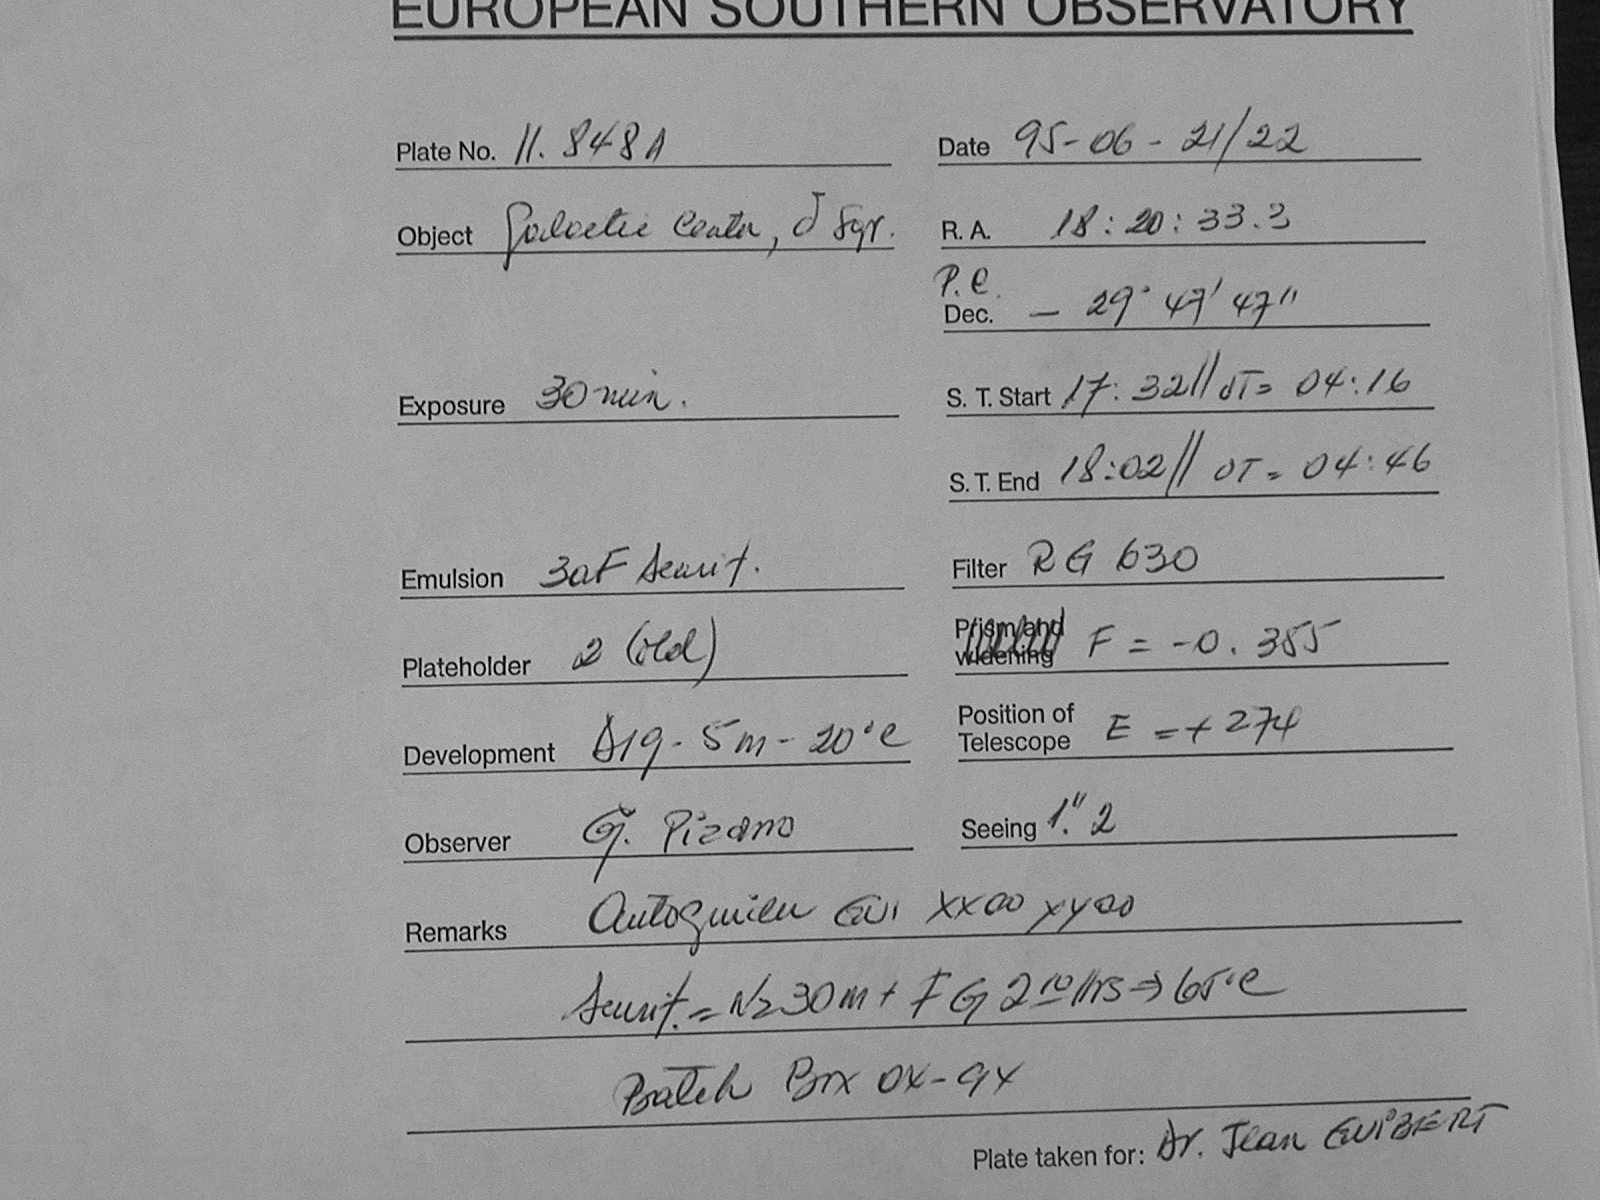 EUROPEAN SOUTHERN OBSERVATORY
Plate No. 11.848A
Date 95-06-21/22
Object Galactic Center, δ Sgr.
R. A. 18:20:33.3
P.C.
Dec. - 29° 47' 47"
Exposure 30 min.
S. T. Start 17:32// UT= 04:16
S. T. End 18:02// UT= 04:46
Emulsion 3aF Sensit.
Filter RG 630
Plateholder 2 (old)
Prism and widening F = -0.355
Development D19-5m-20°C
Position of Telescope E = + 274
Observer G. Pizarro
Seeing 1."2
Remarks XX00 YY00
Sensit. = N2 30m + FG 2 Hrs ⇒ 65°C
Batch
Plate taken for: Dr. Jean GUIBERT